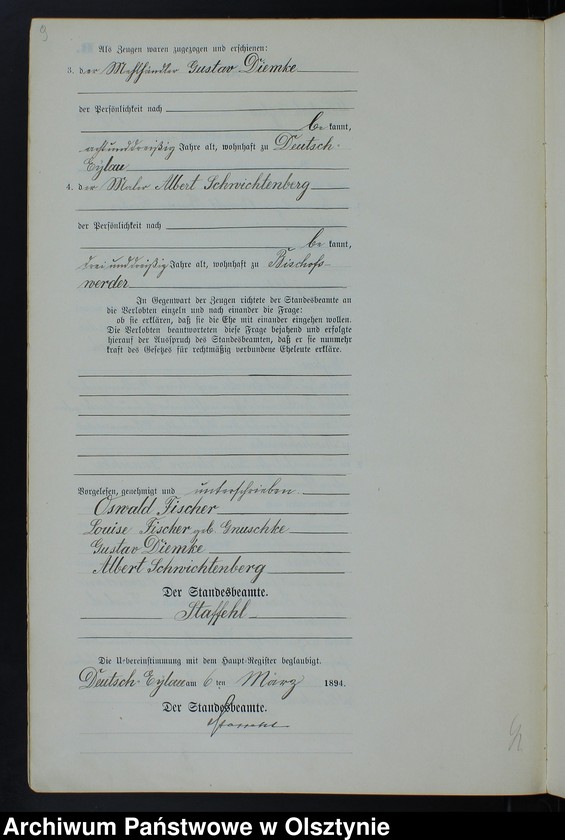 9
Als Zeugen waren zugezogen und erschienen:
3. der Mehlhändler Gustav Diemke
der Persönlichkeit nach
be kannt,
achtunddreißig Jahre alt, wohnhaft zu Deutsch-
Eylau
4. der Maler Albert Schwichtenberg
der Persönlichkeit nach
be kannt,
dreiunddreißig Jahre alt, wohnhaft zu Bischofs-
werder
In Gegenwart der Zeugen richtete der Standesbeamte an
die Verlobten einzeln und nach einander die Frage:
ob sie erklären, daß sie die Ehe mit einander eingehen wollen.
Die Verlobten beantworteten diese Frage bejahend und erfolgte
hierauf der Ausspruch des Standesbeamten, daß er sie nunmehr
kraft des Gesetzes für rechtmäßig verbundene Eheleute erkläre.
Vorgelesen, genehmigt und unterschrieben
Oswald Fischer
Louise Fischer geb. Gnuschke
Gustav Diemke
Albert Schwichtenberg
Der Standesbeamte.
Staffehl
Die Uebereinstimmung mit dem Haupt-Register beglaubigt.
Deutsch-Eylau am 6ten März 1894.
Der Standesbeamte.
Staffehl
Archiwum Państwowe w Olsztynie